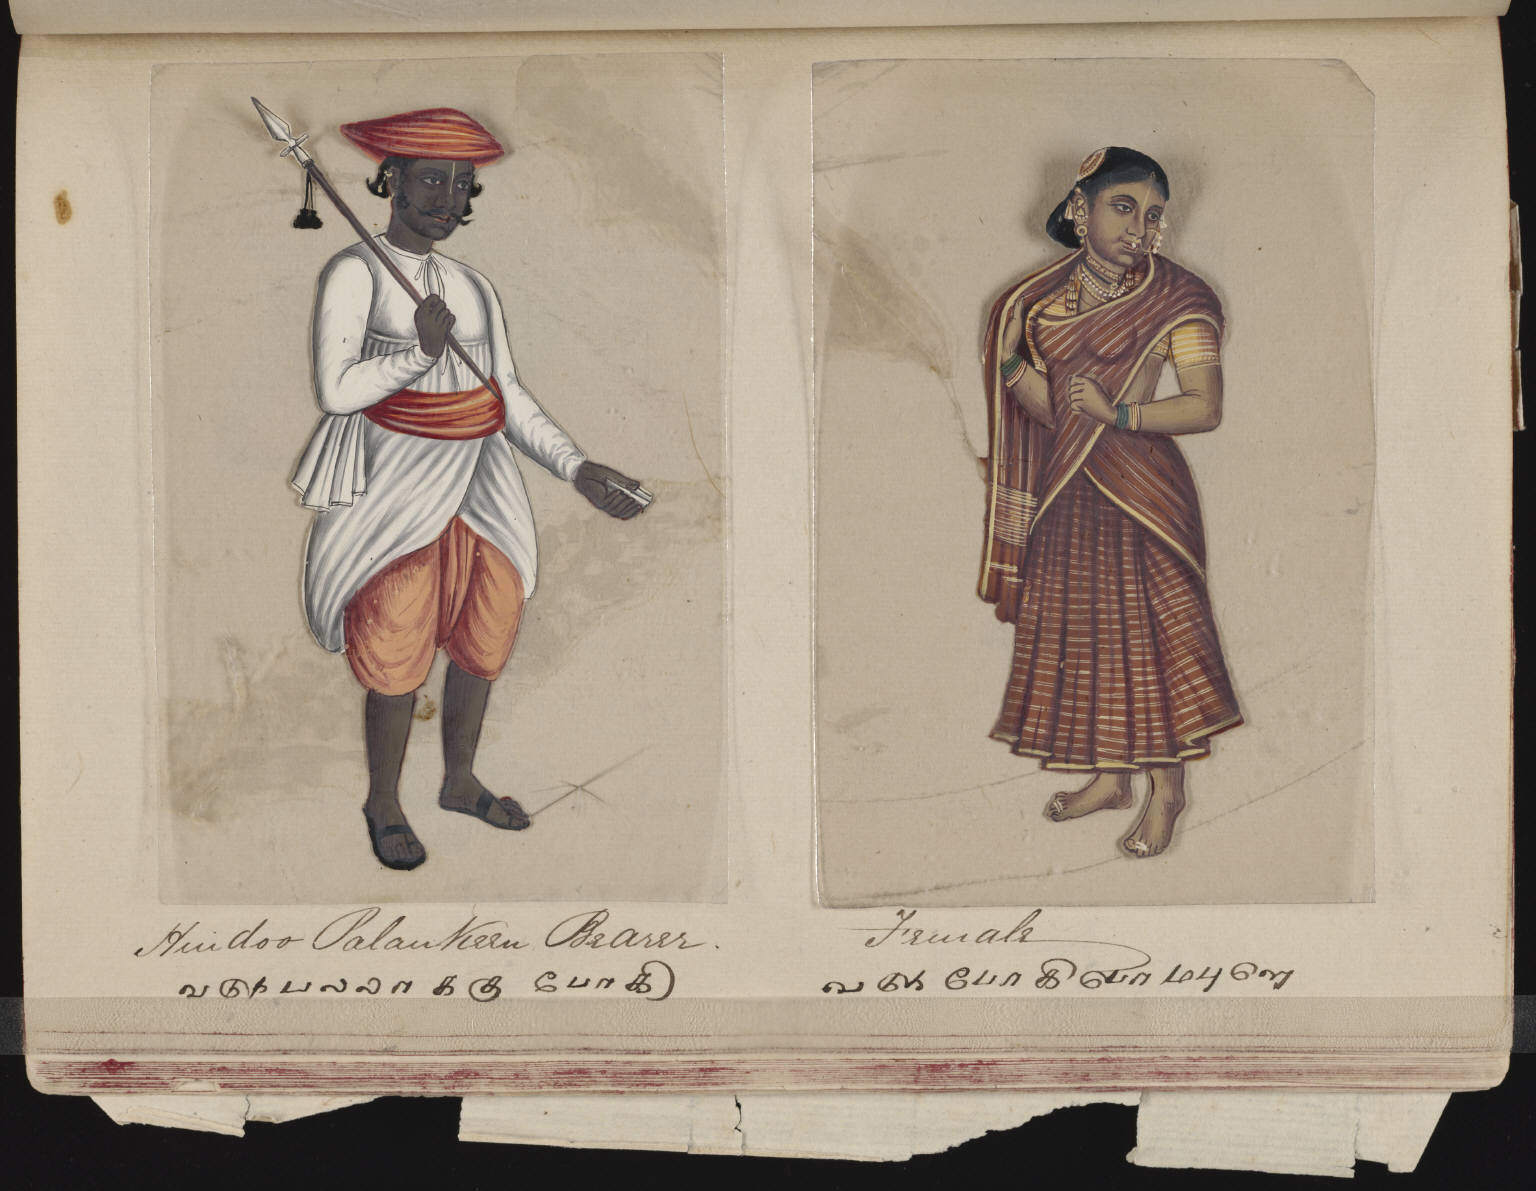 Hindoo Palankeen Bearer.
வடுபலலாககு போகி
Female
வடு போகி